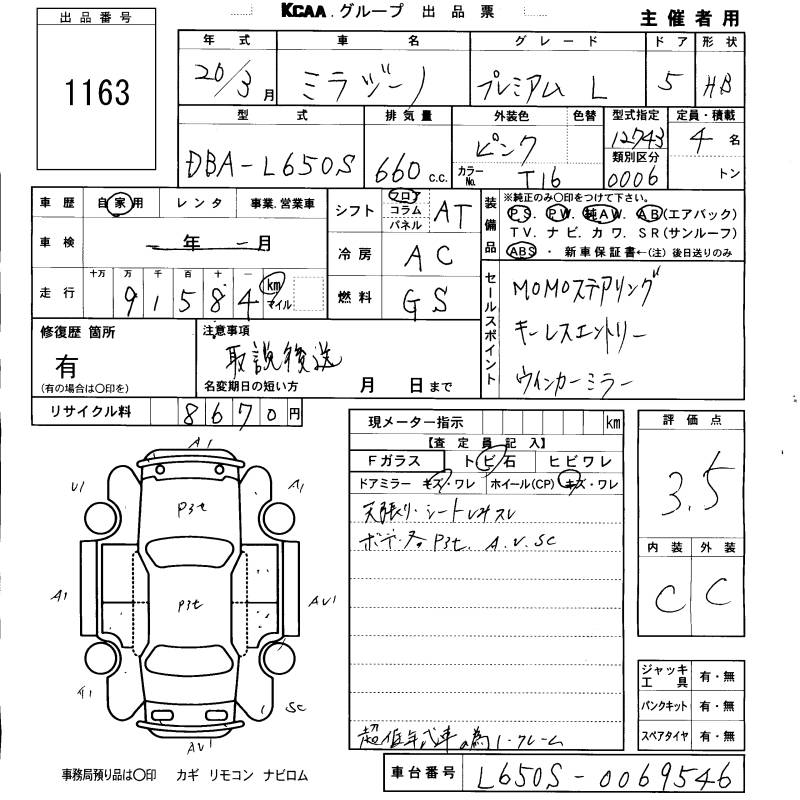 出品番号
1163
KCAA.グループ 出品票
主催者用
年式 車名 グレード ドア 形状
20/3月 ミラジーノ プレミアム L 5 HB
型式 排気量 外装色 色替 型式指定 定員・積載
DBA-L650S 660 c.c. ピンク 12743 4名
カラーNo. T16 類別区分 0006 トン
車歴 自家用 レンタ 事業.営業車
車検 ー年ー月
走行 十万 万 千 百 十 一
91584 km マイル
シフト フロア コラム パネル AT
冷房 AC
燃料 GS
装備品 ※純正のみ〇印をつけて下さい。
PS. PW. 純AW. AB(エアバック)
TV. ナビ. カワ. SR(サンルーフ)
ABS ・ 新車保証書←(注)後日送りのみ
セールスポイント
MOMOステアリング
キーレスエントリー
ウインカーミラー
修復歴 箇所
有
(有の場合は〇印を)
注意事項
取説後送
名変期日の短い方 月 日まで
リサイクル料 8670円
現メーター指示 km
【査定員記入】
Fガラス トビ石 ヒビワレ
ドアミラー キズ・ワレ ホイール(CP) キズ・ワレ
天張り・シート
P3t. A.U.SC
評価点
3.5
内装 外装
C C
A1
U1 A1
P3t
A1 P3t AU1
A1 SC
AU1
ジャッキ工具 有・無
パンクキット 有・無
スペアタイヤ 有・無
超低年式車の為ノークレーム
事務局預り品は〇印 カギ リモコン ナビロム
車台番号 L650S-0069546